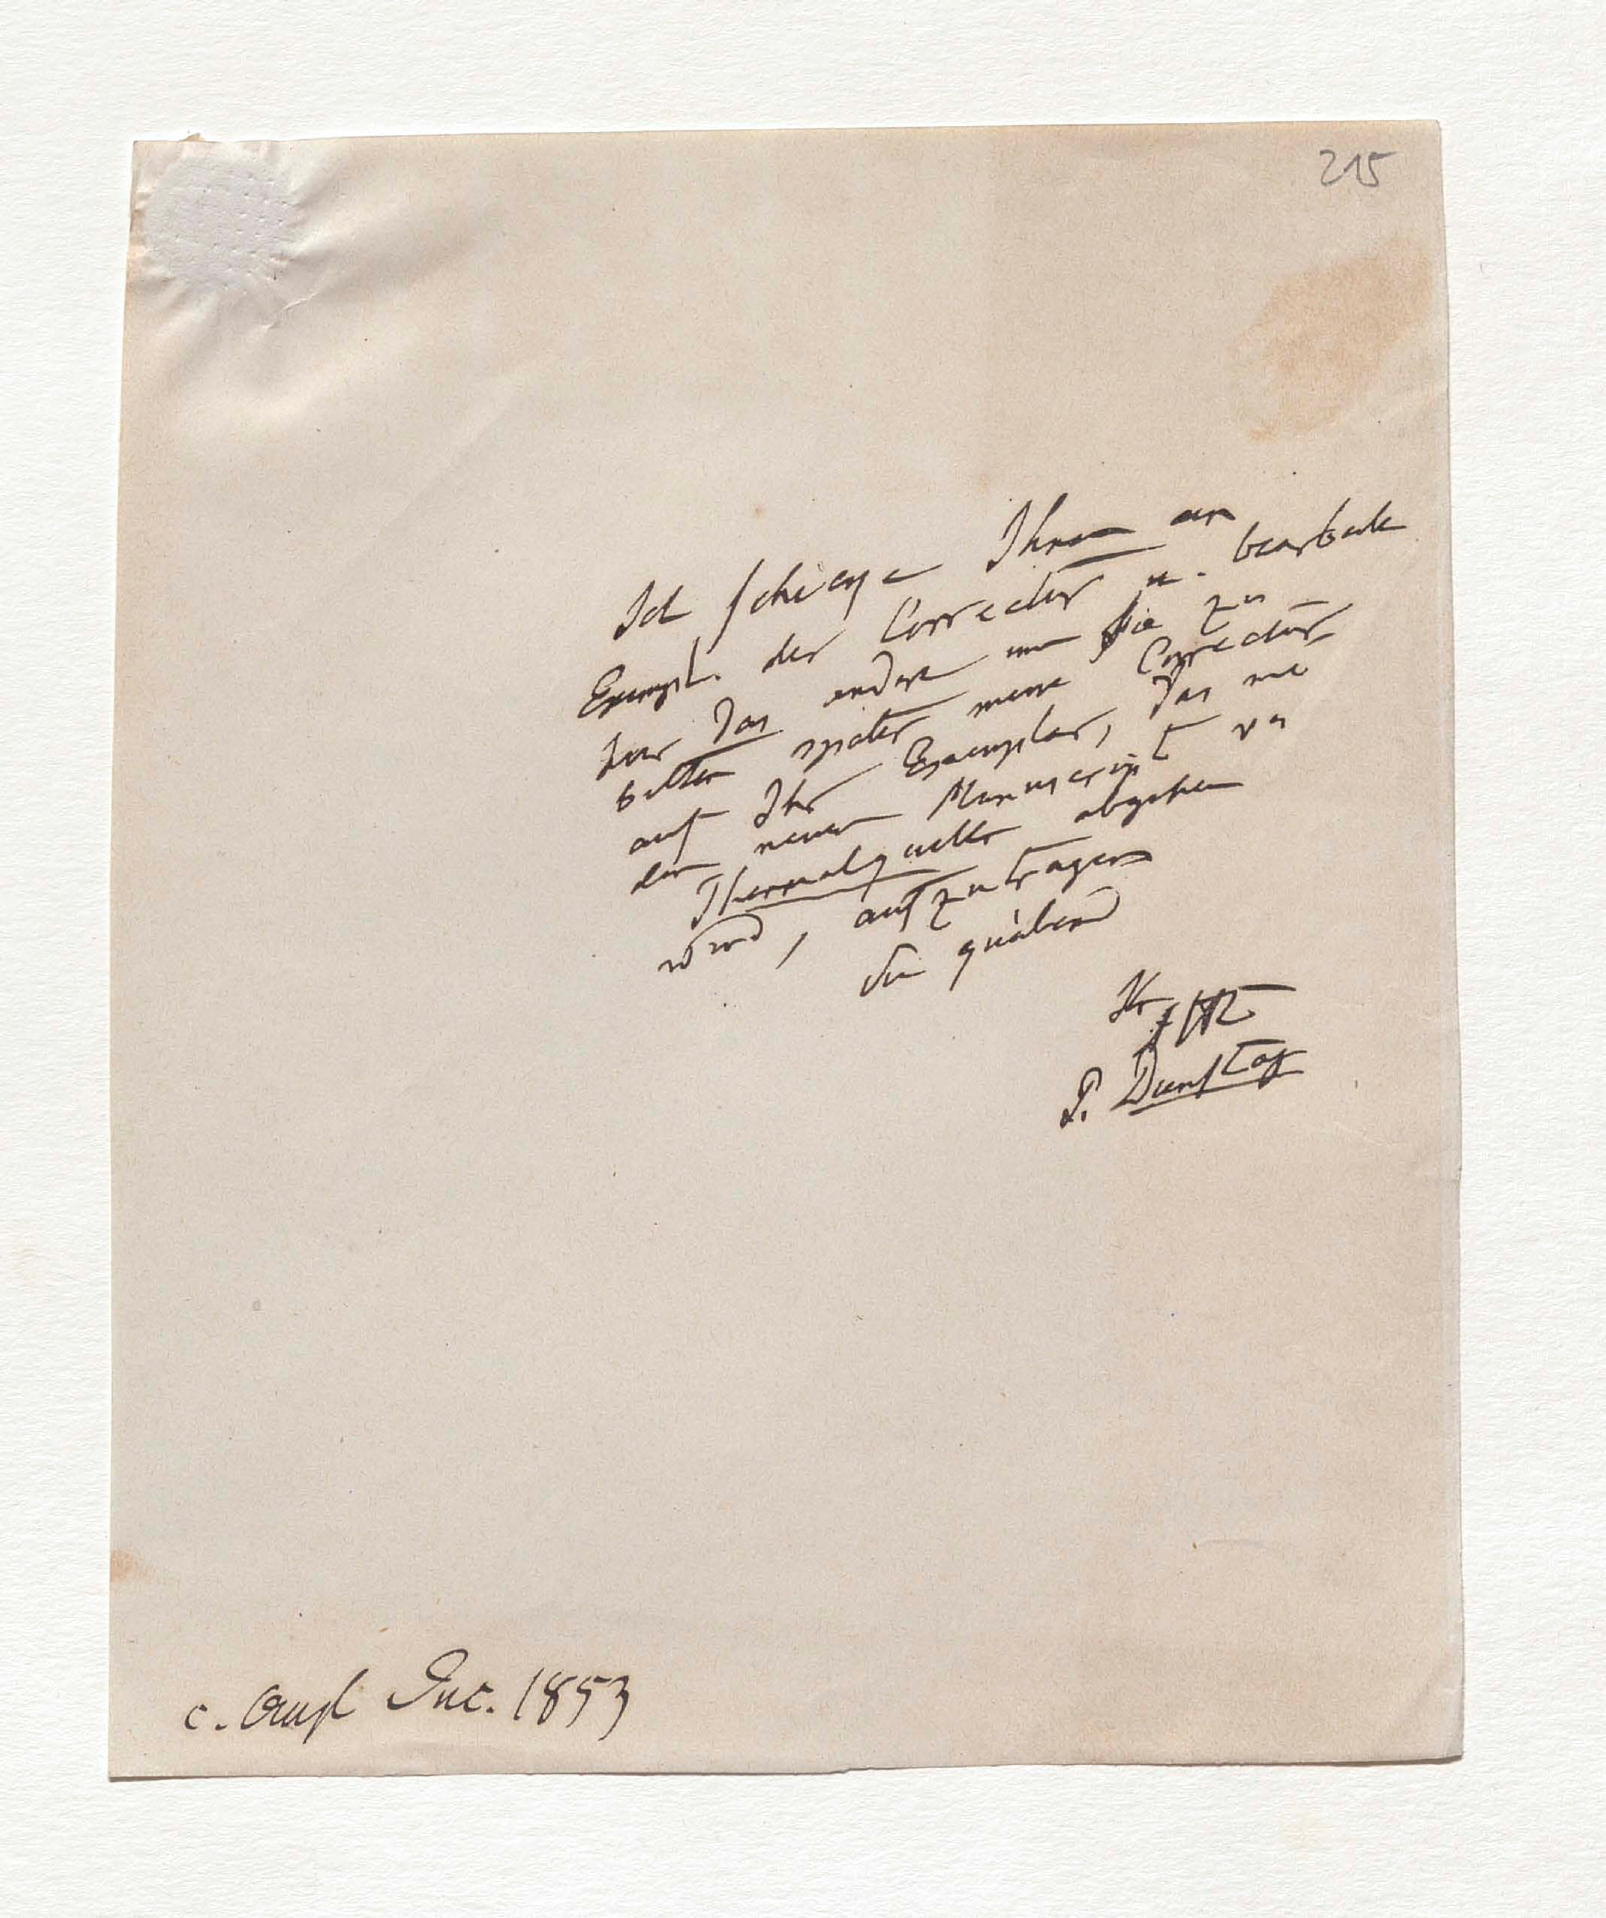 215
Ich schicke Ihnen ein
Exempl. der Correctur u. bearbeite
hier das andere um Sie zu
bitten später meine Correctur
auf Ihr Exemplar, das mi
dem neuen Manuscript von
Thermalquellen abgehen
wird, aufzutragen
Ihr
AHt
P. Dienstag
c. Anf Dec. 1853